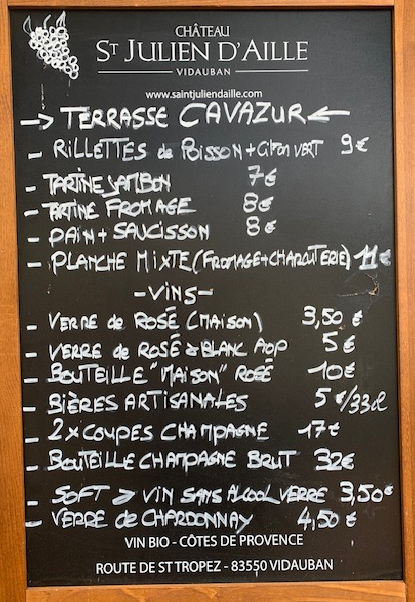 CHÂTEAU
ST JULIEN D'AILLE
VIDAUBAN
www.saintjuliendaille.com
→ TERRASSE CAVAZUR ←
- RILLETTES de POISSON + CITRON VERT 9€
- TARTINE JAMBON 7€
- TARTINE FROMAGE 8€
- PAIN + SAUCISSON 8€
- PLANCHE MIXTE (FROMAGE + CHARCUTERIE) 11€
- VINS -
- VERRE de ROSÉ (MAISON) 3,50 €
- VERRE de ROSÉ & BLANC AOP 5€
- BOUTEILLE "MAISON" ROSÉ 10€
- BIÈRES ARTISANALES 5€/33cl
- 2 x COUPES CHAMPAGNE 17€
- BOUTEILLE CHAMPAGNE BRUT 32€
- SOFT > VIN SANS ALCOOL VERRE 3,50€
- VERRE de CHARDONNAY 4,50 €
VIN BIO - CÔTES DE PROVENCE
ROUTE DE ST TROPEZ - 83550 VIDAUBAN